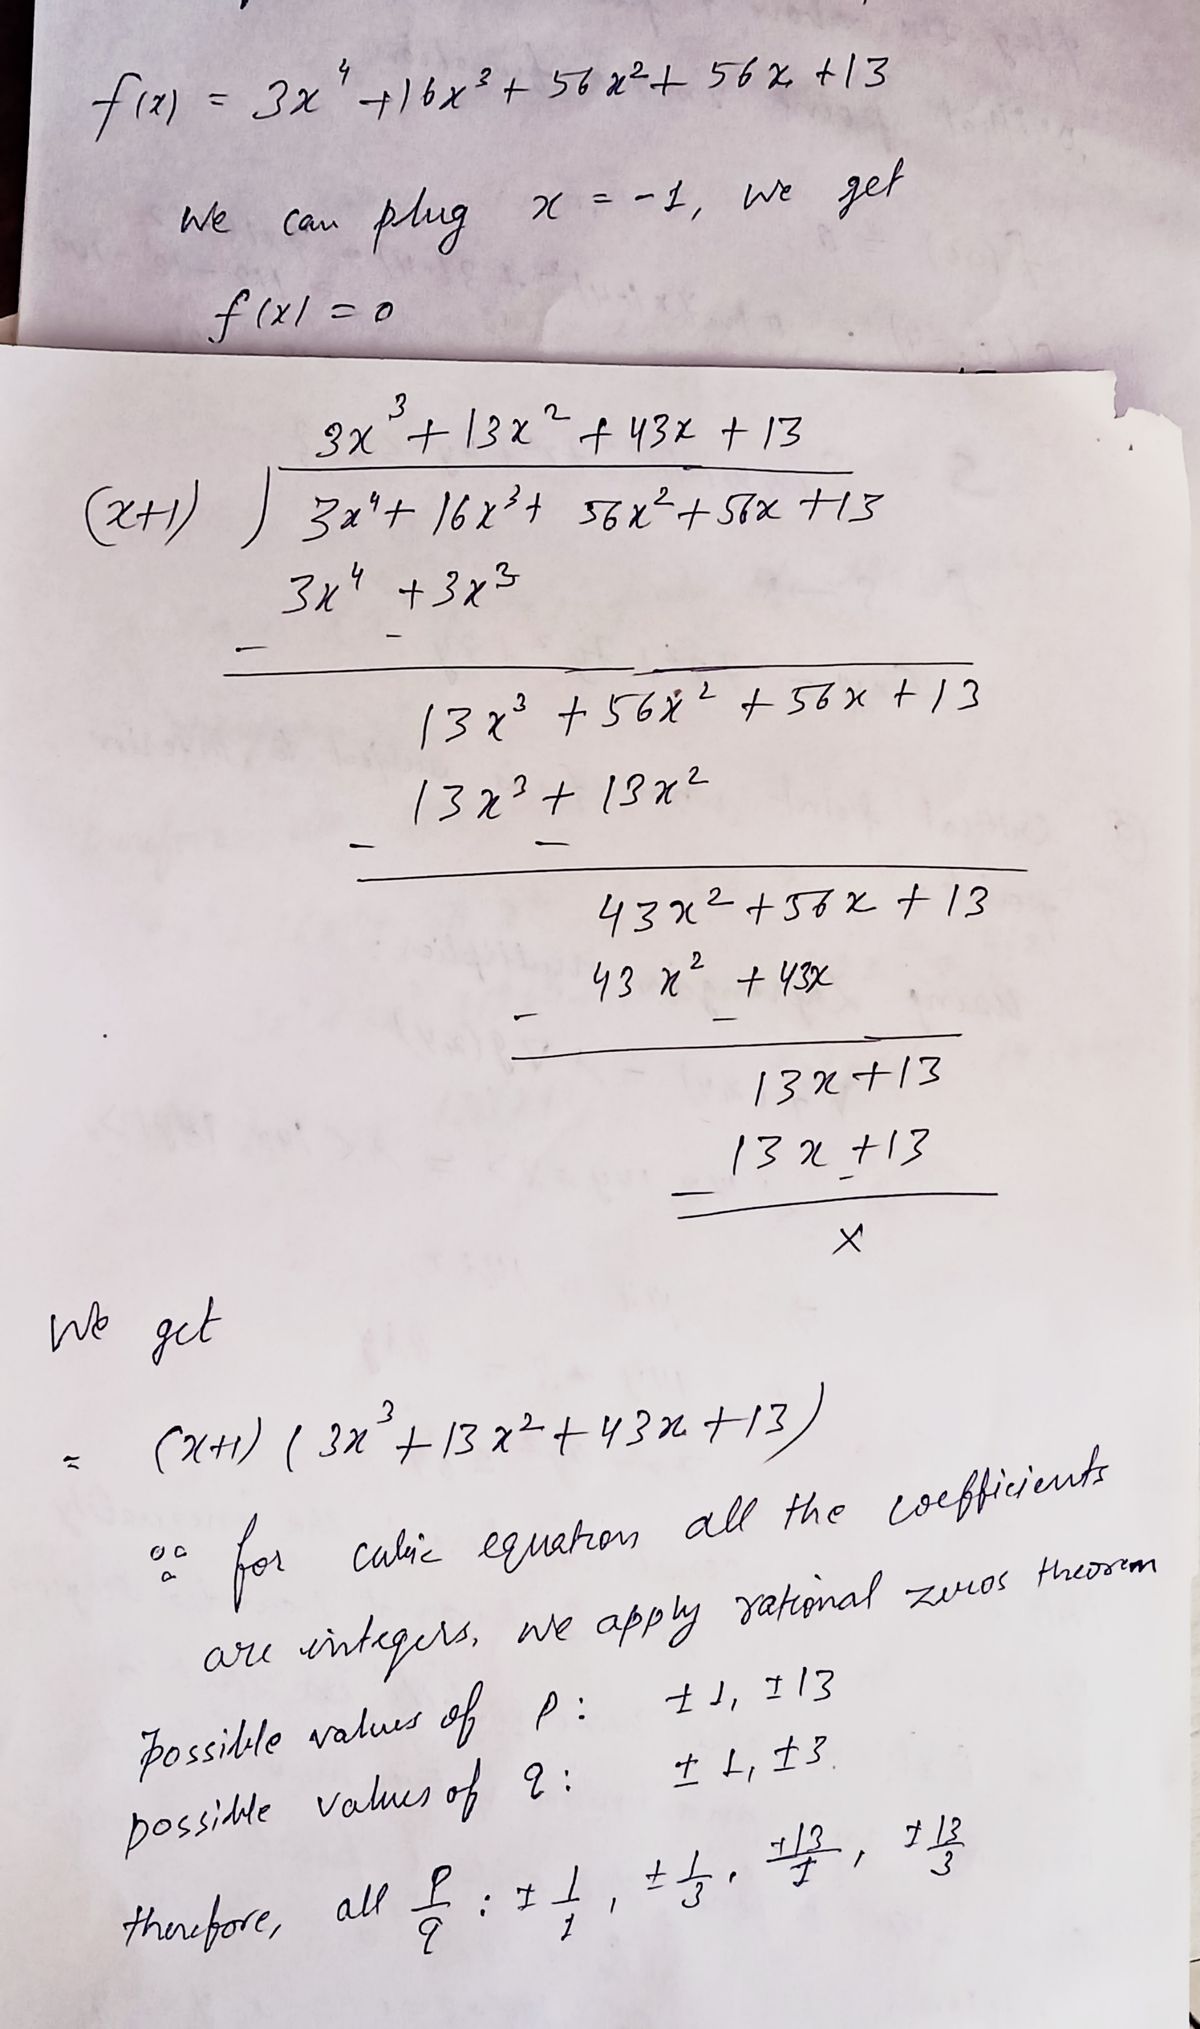 f(x) = 3x⁴ + 16x³ + 56x² + 56x + 13
we can plug x = -1, we get
f(x) = 0
3x³ + 13x² + 43x + 13
(x+1) ) 3x⁴ + 16x³ + 56x² + 56x + 13
3x⁴ + 3x³
- -
13x³ + 56x² + 56x + 13
13x³ + 13x²
- -
43x² + 56x + 13
43x² + 43x
- -
13x + 13
13x + 13
- -
x
we get
= (x+1) (3x³ + 13x² + 43x + 13)
∵ for cubic equation all the coefficients
are integers, we apply rational zeros theorem
possible values of p: ±1, ±13
possible values of q: ±1, ±3.
therefore, all p/q : ±1/1, ±1/3, ±13/1, ±13/3